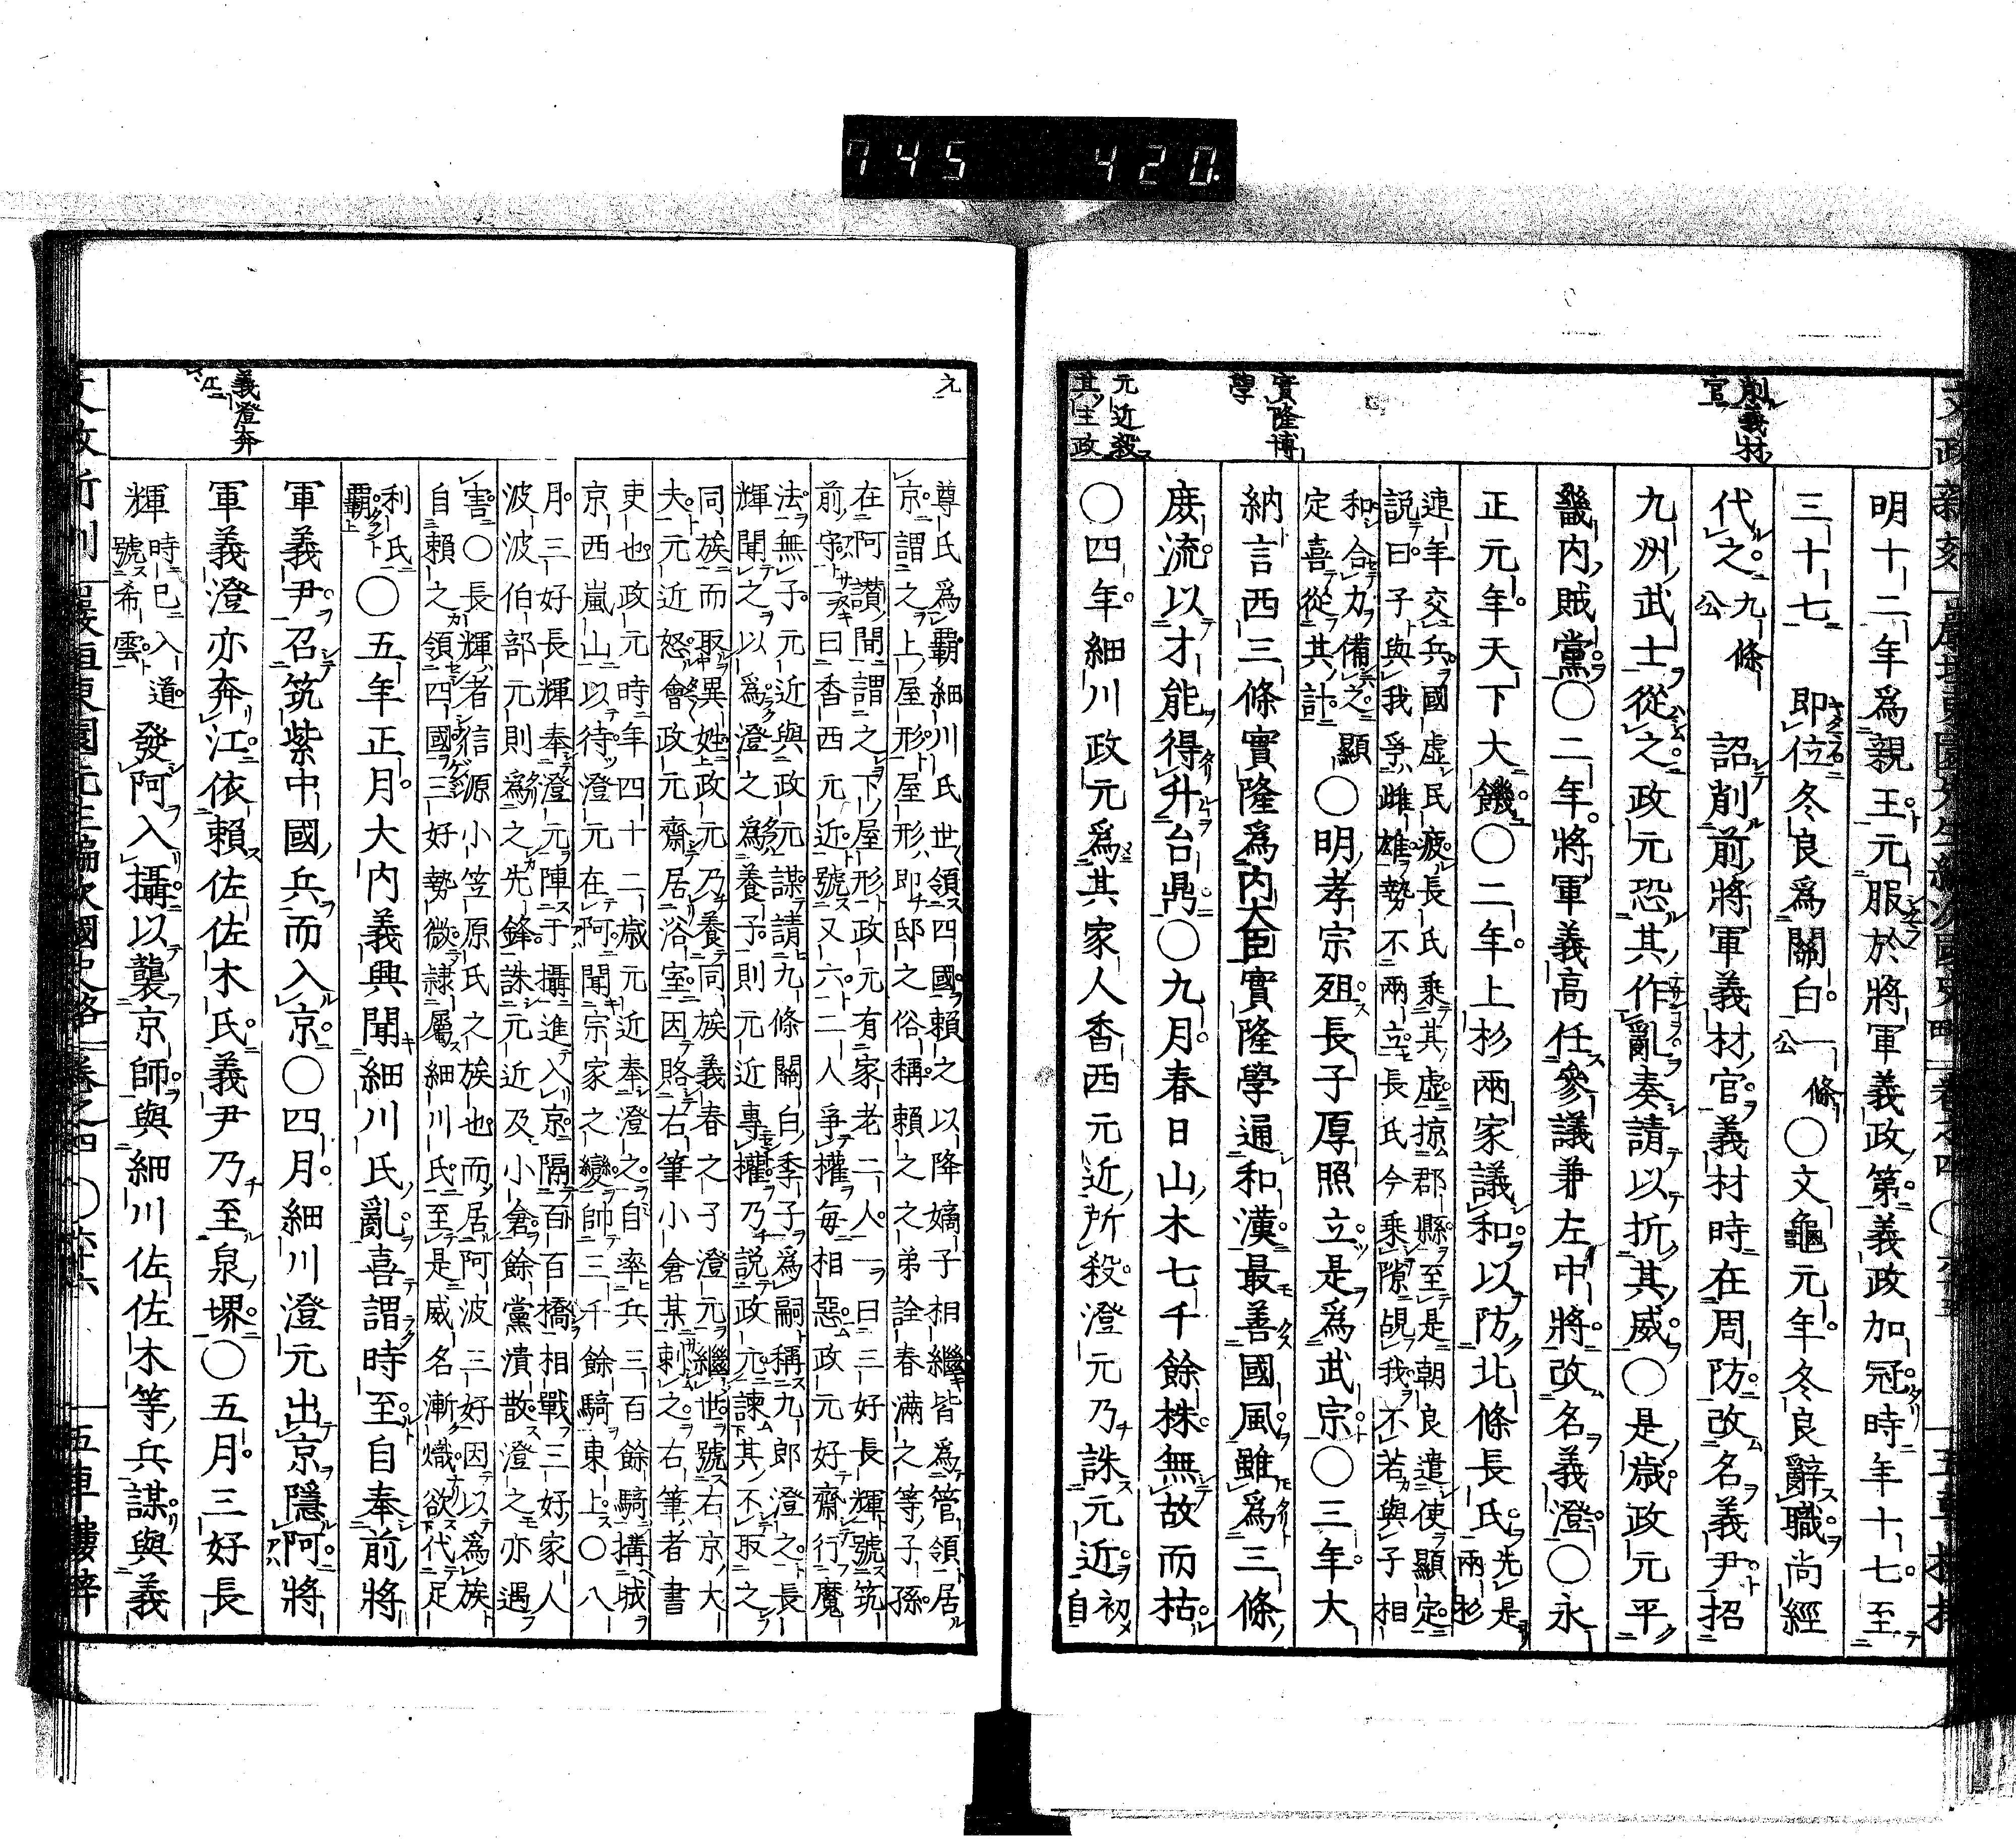 745 420
削義材
官
實隆博
學
元近殺
其主政
明十二年爲親王元服於將軍義政第義政加冠時年十七至
三十七即位冬良爲關白一條公〇文龜元年冬良辭職尚經
代之九條公詔削前將軍義材官義材時在周防改名義尹招
九州武士從之政元恐其作亂奏請以折其威〇是歲政元平
畿内賊黨〇二年將軍義高任參議兼左中將改名義澄〇永
正元年天下大饑〇二年上杉兩家議和以防北條長氏先是兩杉
連年交兵國虚民疲長氏乘其虚掠郡縣至是朝良遣使顯定
説曰子與我爭雌雄勢不兩立長氏今乘隙覘我不若與子相
和合力備之顯
定喜從其計〇明孝宗殂長子厚照立是爲武宗〇三年大
納言西三條實隆爲内大臣實隆學通和漢最善國風雖爲三條
庶流以才能得升台鼎〇九月春日山木七千餘株無故而枯
〇四年細川政元爲其家人香西元近所殺澄元乃誅元近初自
元
義澄奔
江
尊氏爲覇細川氏世領四國賴之以降嫡子相繼皆爲管領居
京謂之上屋形屋形即邸之俗稱賴之之弟詮春滿之等子孫
在阿讚間謂之下屋形政元有家老二人一曰三好長輝號筑
前守一曰香西元近號又六二人爭權每相惡政元好齋行魔
法無子元近與政元謀請九條關白季子爲嗣稱九郎澄之長
輝聞之以爲澄之爲養子則元近專權乃説政元諫其不取之
同族而取異姓政元乃養同族義春之子澄元繼世號右京大
夫元近怒會政元齋居浴室因賂右筆小倉某刺之右筆者書
吏也政元時年四十二歲元近奉澄之自率兵三百餘騎搆城
京西嵐山以待澄元在阿聞宗家之變帥三千餘騎東上〇八
月三好長輝奉澄元陣于攝進入京隔百百橋相戰三好家人
波波伯部元則爲之先鋒誅元近及小倉餘黨潰散澄之亦遇
害〇長輝者信源小笠原氏之族也而居阿波三好因以爲族
自賴之領四國三好勢微隷屬細川氏至是威名漸熾欲代足
利氏
覇上〇五年正月大内義興聞細川氏亂喜謂時至自奉前將
軍義尹召筑紫中國兵而入京〇四月細川澄元出京隱阿將
軍義澄亦奔江依賴佐佐木氏義尹乃至泉堺〇五月三好長
輝時已入道號希雲發阿入攝以襲京師與細川佐佐木等兵謀與義